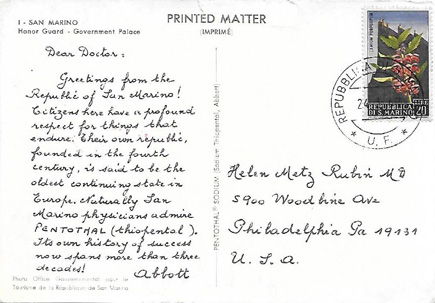 1 - SAN MARINO
Honor Guard - Government Palace
PRINTED MATTER
(IMPRIMÉ)
Dear Doctor:
Greetings from the
Republic of San Marino!
Citizens here have a profound
respect for things that
endure. Their own republic,
founded in the fourth
century, is said to be the
oldest continuing state in
Europe. Naturally San
Marino physicians admire
PENTOTHAL (thiopental).
Its own history of success
now spans more than three
decades!
Abbott
Photo Office Gouvernemental pour le
Tourisme de la République de San Marino
PENTOTHAL SODIUM (Sodium Thiopental, Abbott)
REPUBBLICA
24
U. F.
REPUBBLICA
DI S. MARINO
LIRE
20
Helen Metz Rubin MD
5900 Woodbine Ave
Philadelphia Pa 19131
U. S. A.